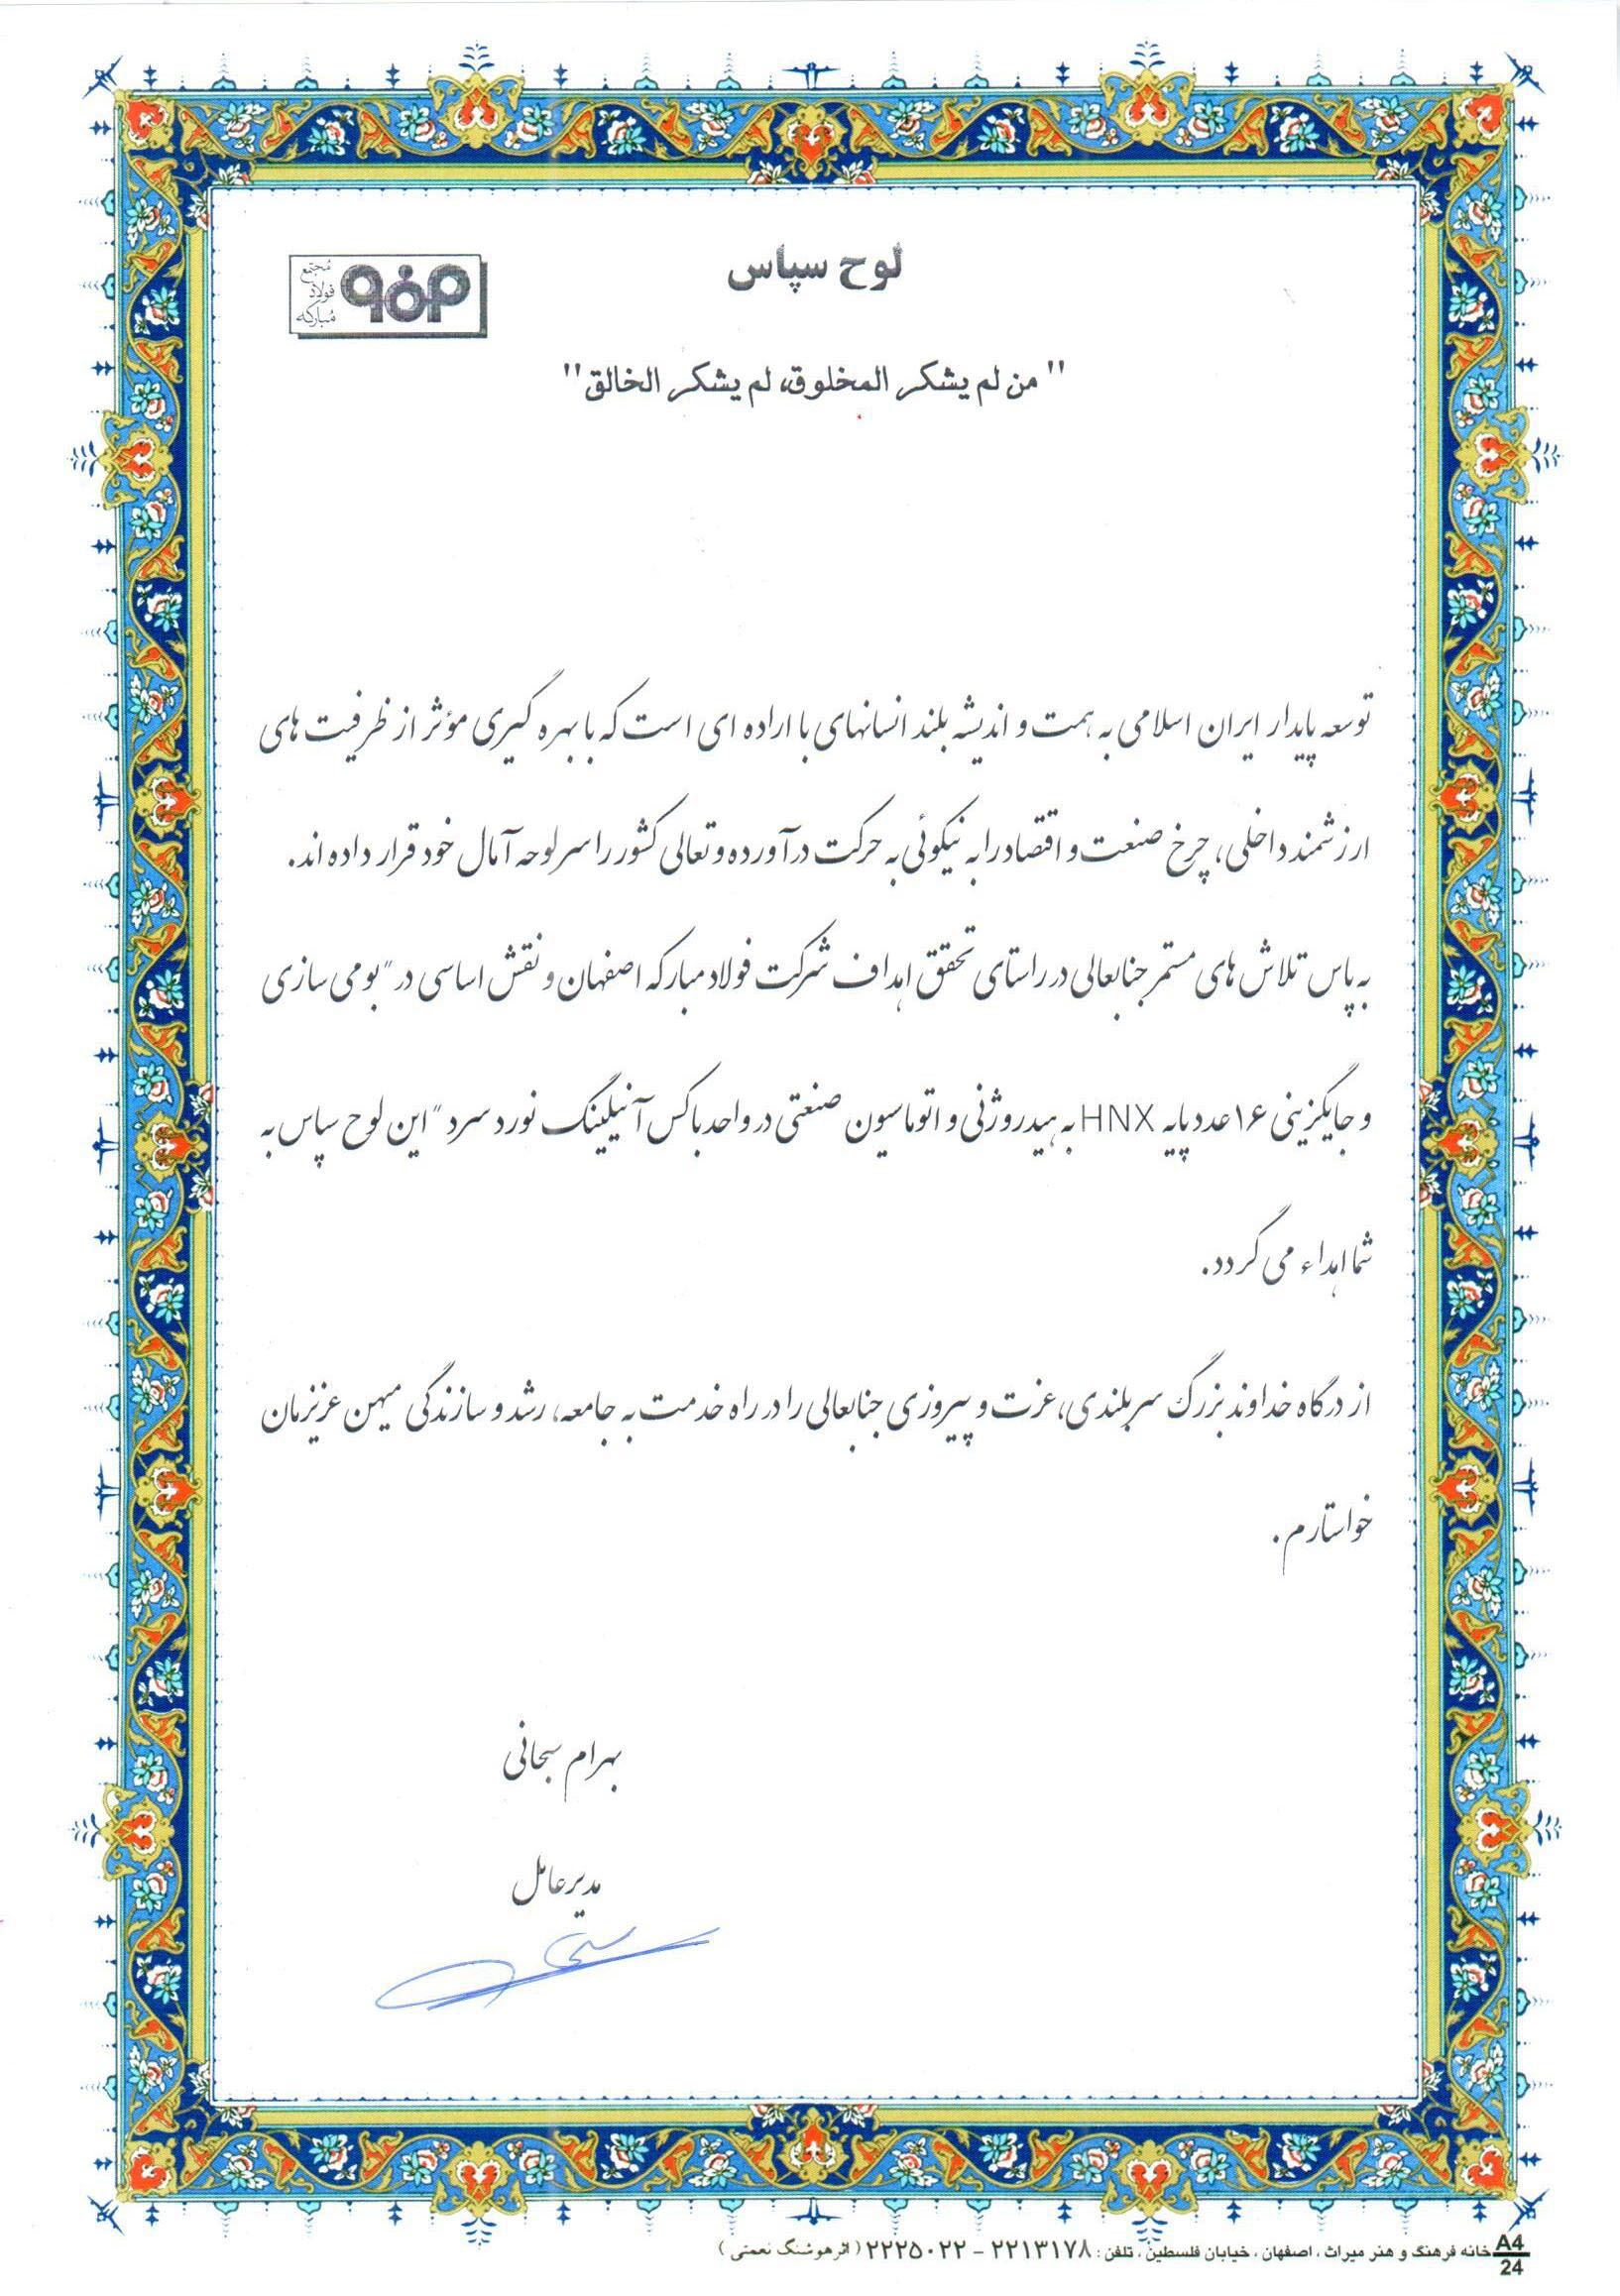 لوح سپاس
مجتمع
فولاد
مبارکه
" من لم یشکر المخلوق، لم یشکر الخالق "
توسعه پایدار ایران اسلامی به همت و اندیشه بلند انسانهای با اراده ای است که با بهره گیری مؤثر از ظرفیت های
ارزشمند داخلی، چرخ صنعت و اقتصاد را به نیکوئی به حرکت درآورده و تعالی کشور را سرلوحه آمال خود قرار داده اند.
به پاس تلاش های مستمر جنابعالی در راستای تحقق اهداف شرکت فولاد مبارکه اصفهان و نقش اساسی در "بومی سازی
و جایگزینی ۱۶ عدد پایه HNX به هیدروژنی و اتوماسیون صنعتی در واحد باکس آنیلینگ نورد سرد" این لوح سپاس به
شما اهداء می گردد.
از درگاه خداوند بزرگ سربلندی، عزت و پیروزی جنابعالی را در راه خدمت به جامعه، رشد و سازندگی میهن عزیزمان
خواستارم.
بهرام سبحانی
مدیرعامل
A4
24
خانه فرهنگ و هنر میراث ، اصفهان ، خیابان فلسطین ، تلفن : ۲۲۱۳۱۷۸ - ۲۲۲۵۰۲۲ ( اثر هوشنگ نعمتی )